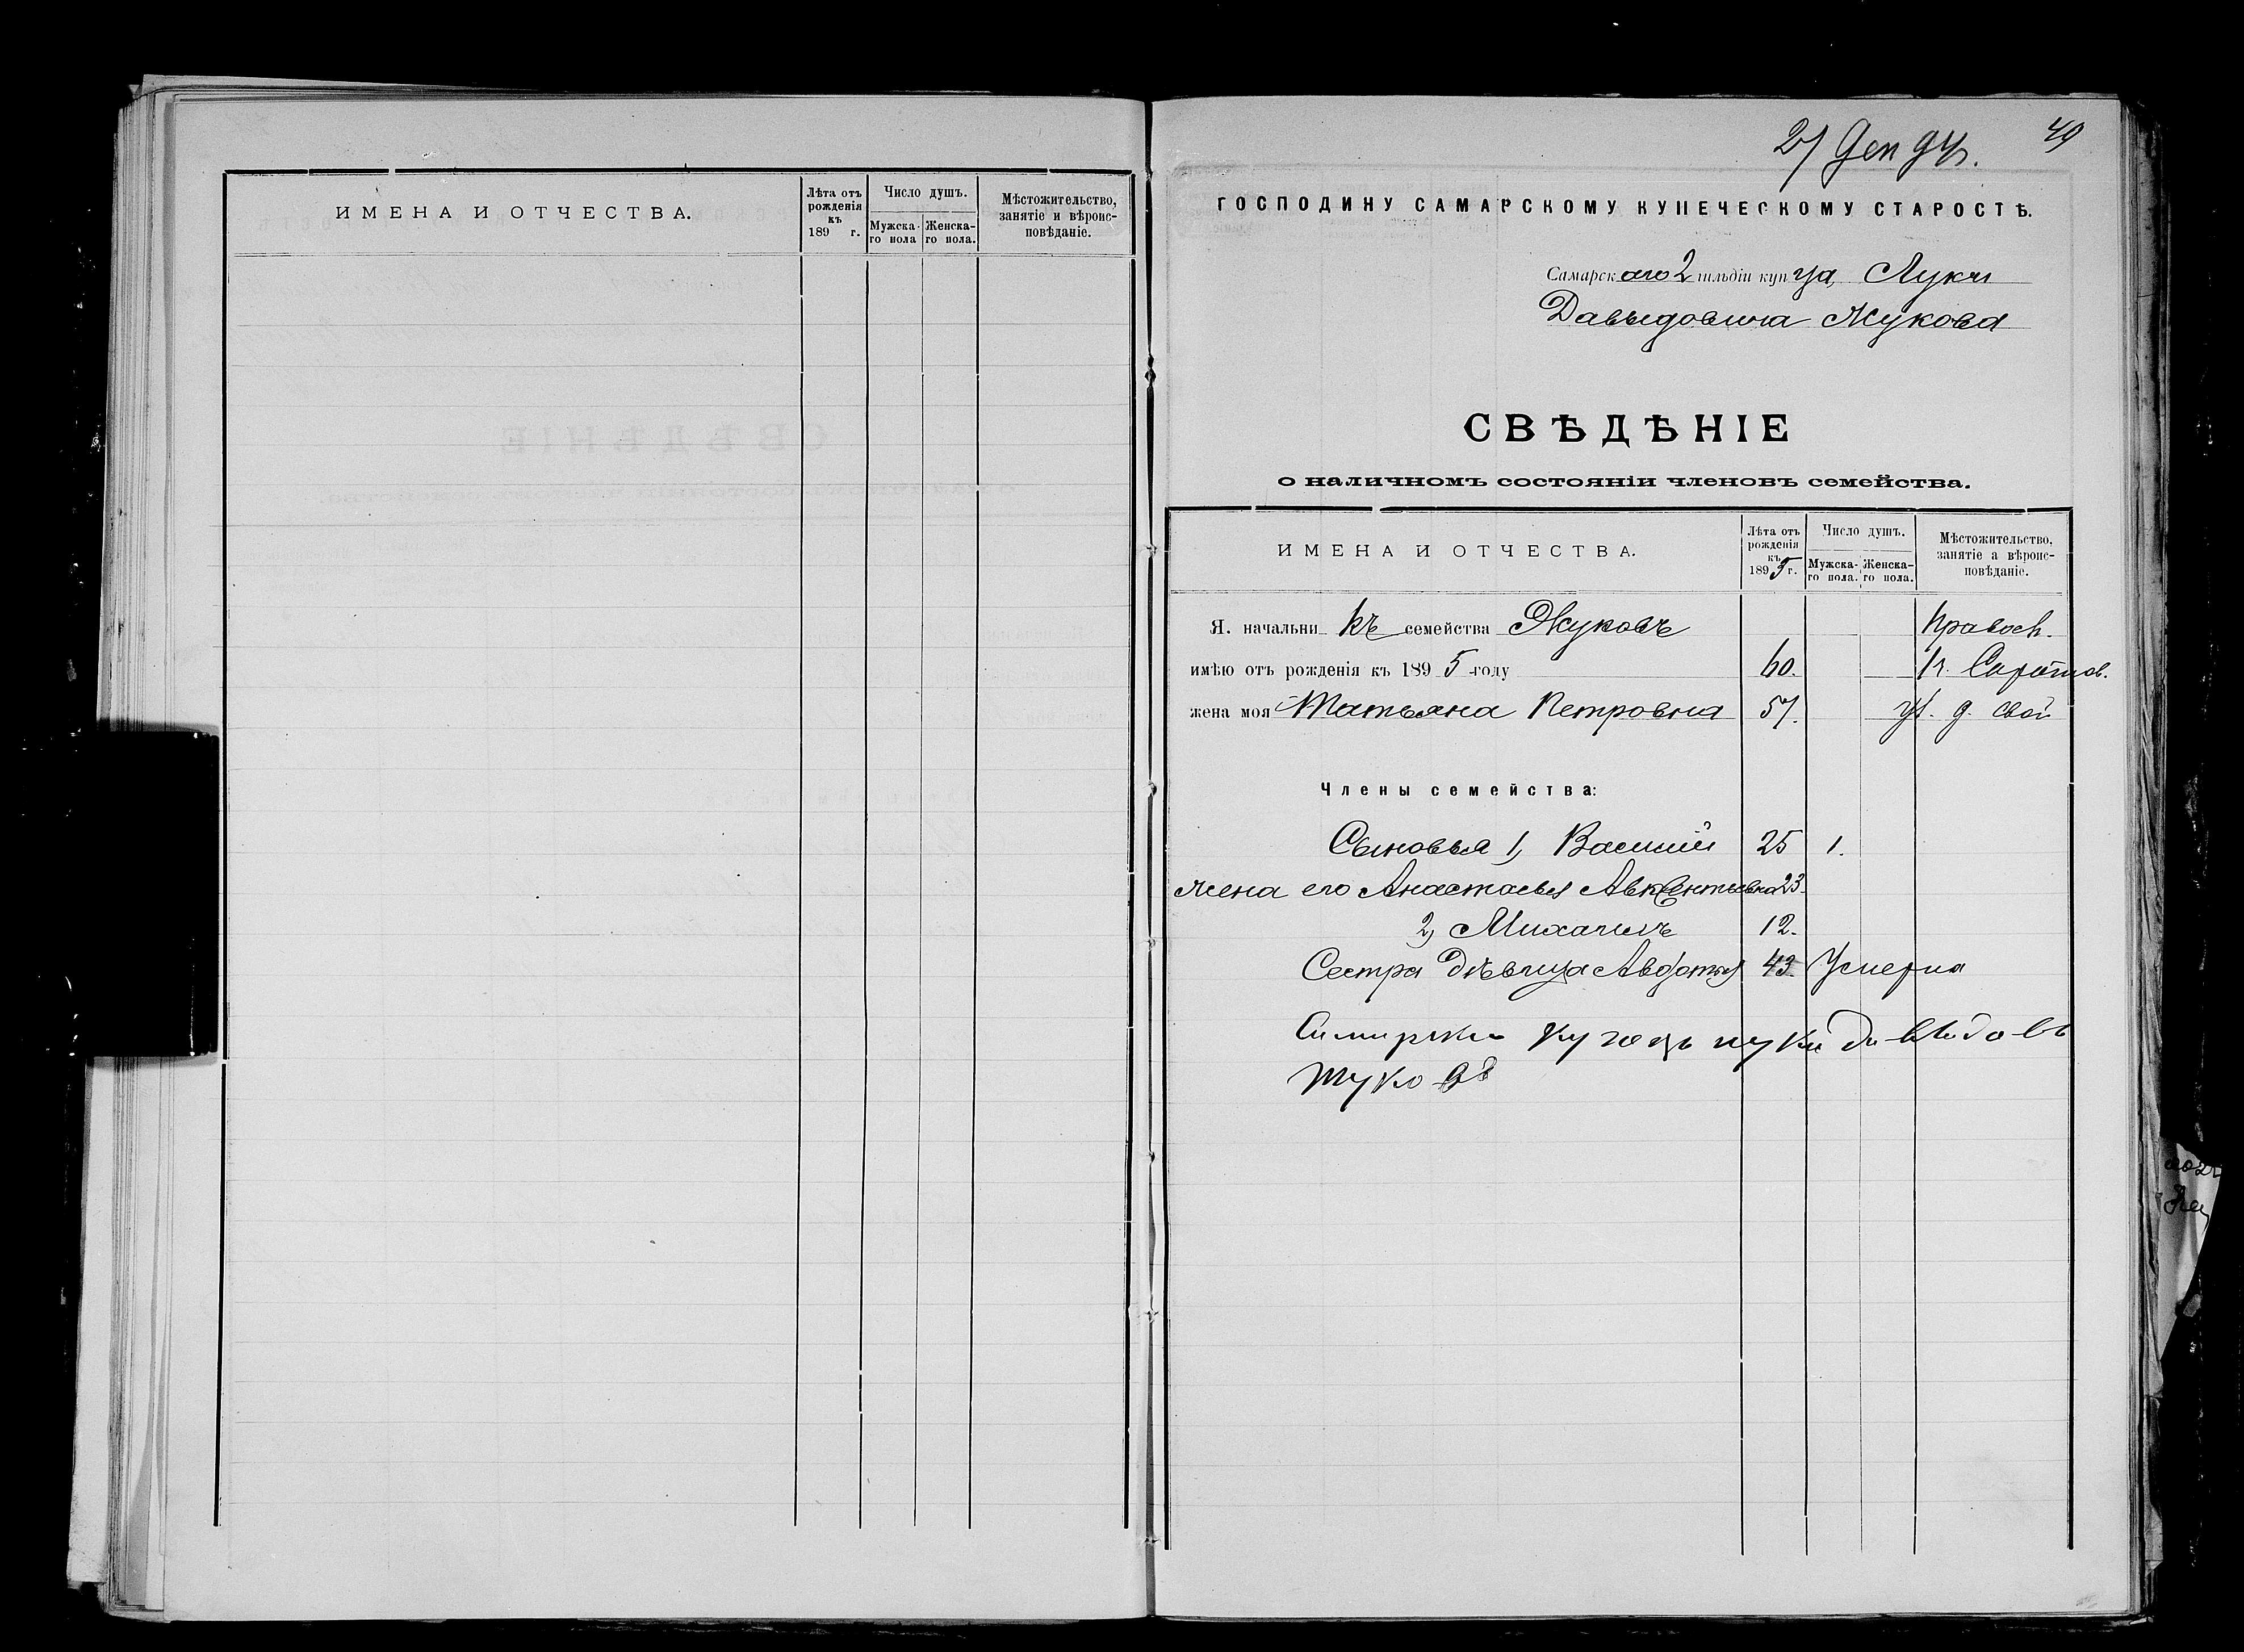 ИМЕНА И ОТЧЕСТВА.
Лѣта отъ рожденія къ 189 г.
Число душъ.
Мужска-го пола
Женска-го пола.
Мѣстожительство, занятіе и вѣроис-повѣданіе.
27 Дек 94 г.
49
ГОСПОДИНУ САМАРСКОМУ КУПЕЧЕСКОМУ СТАРОСТѢ.
Самарскаго 2 гильдіи купца, Луки
Давыдовича Жукова
СВѢДѢНІЕ
о наличномъ состояніи членовъ семейства.
ИМЕНА И ОТЧЕСТВА.
Лѣта отъ рожденія къ 1895 г.
Число душъ.
Мужска-го пола.
Женска-го пола.
Мѣстожительство, занятіе а вѣроис-повѣданіе.
Я. начальникъ семейства Жуковъ Правосл.
имѣю отъ рожденія къ 1895 году 60.
жена моя Татьяна Петровна 57. ул. д. свой
Члены семейства:
Сыновья 1, Василий 25 1.
Жена его Анастасья Авксентьевна 23
2, Михаилъ 12.
Сестра дѣвица Авдотья 43. Умерла
купецъ лука давыдовъ
жуковъ